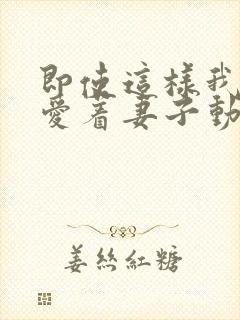 即使這樣我
愛着妻子動
姜絲紅糖